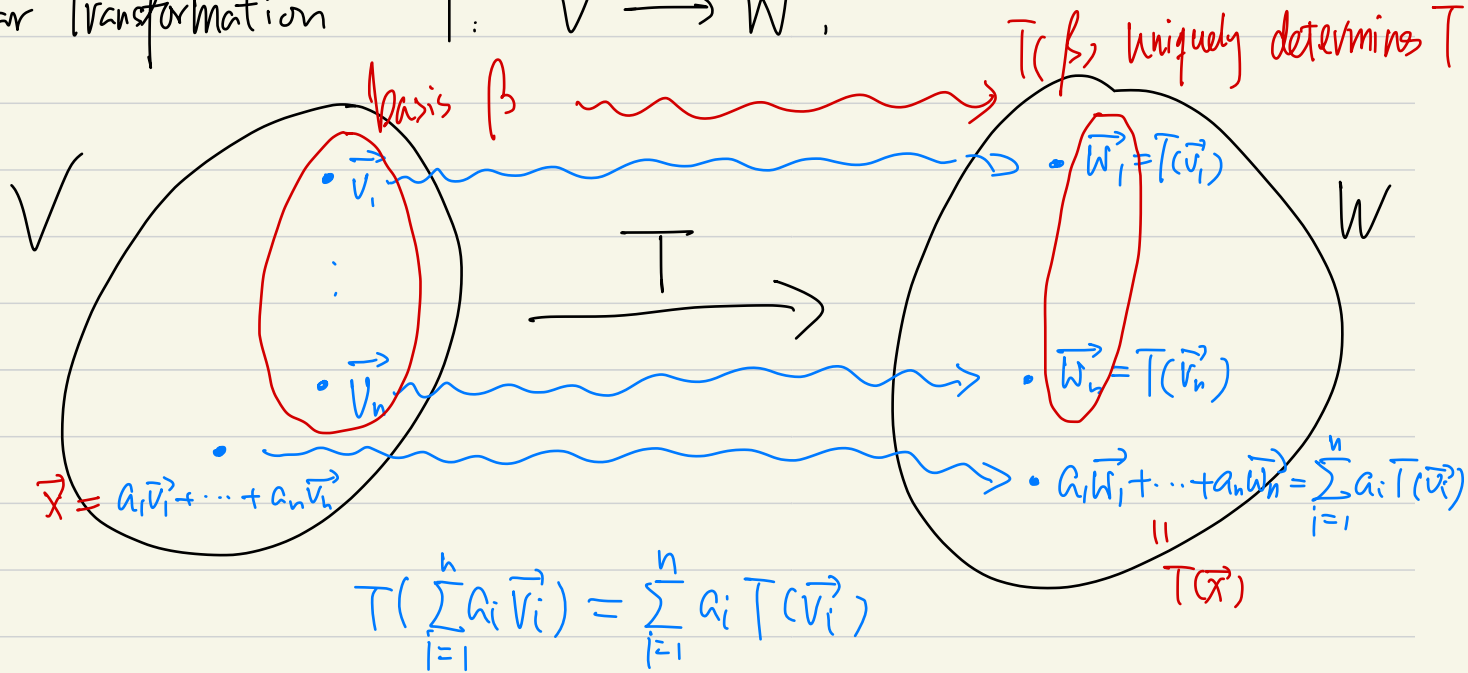 ar Transformation T: V → W .
T(β) uniquely determines T
basis β
V
v⃗₁
w⃗₁ = T(v⃗₁)
W
T
⋮
v⃗ₙ
w⃗ₙ = T(v⃗ₙ)
x⃗ = a₁v⃗₁ + ⋯ + aₙv⃗ₙ
a₁w⃗₁ + ⋯ + aₙw⃗ₙ = ∑ᵢ₌₁ⁿ aᵢ T(v⃗ᵢ)
||
T(x⃗)
T( ∑ᵢ₌₁ⁿ aᵢ v⃗ᵢ ) = ∑ᵢ₌₁ⁿ aᵢ T(v⃗ᵢ)